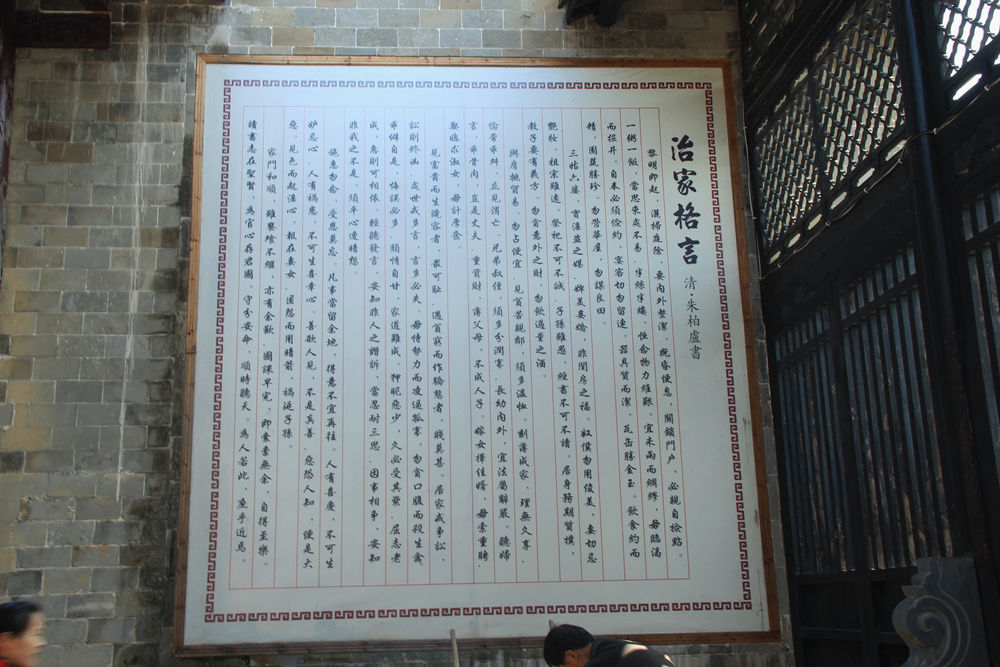 治家格言 清·朱柏廬書
黎明即起，灑掃庭除，要內外整潔。既昏便息，關鎖門戶，必親自檢點。
一粥一飯，當思來處不易，半絲半縷，恒念物力維艱。宜未雨而綢繆，毋臨渴
而掘井。自奉必須儉約，宴客切勿留連。器具質而潔，瓦缶勝金玉。飲食約而
精，園蔬勝珍。勿營華屋，勿謀良田。
三姑六婆，實淫盜之媒，婢美妾嬌，非閨房之福。奴僕勿用俊美，妻切忌
艷妝。祖宗雖遠，祭祀不可不誠，子孫雖愚，經書不可不讀。居身務期質樸，
教子要有義方。勿貪意外之財，勿飲過量之酒。
與肩挑貿易，勿占便宜，見貧苦親鄰，須多溫恤。刻薄成家，理無久享，
倫常乖舛，立見消亡。兄弟叔侄，須多分潤寡，長幼內外，宜法屬辭嚴。聽婦
言，乖骨肉，豈是丈夫，重資財，薄父母，不成人子。嫁女擇佳婿，毋索重聘
娶媳求淑女，毋計厚奩
見富貴而生諂容者，最可恥，遇貧窮而作驕態者，賤莫甚。居家戒爭訟，
訟則終凶，處世戒多言，言多必失。毋恃勢力而凌逼孤寡，勿貪口腹而殺生禽。
乖僻自是，悔誤必多，頹惰自甘，家道難成。狎昵惡少，久必受其累，屈志老
成，急則可相依。輕聽發言，安知非人之譖訴，當忍耐三思，因事相爭，安知
非我之不是，須平心遭暗想。
施惠勿念，受恩莫忘。凡事當留餘地，得意不宜再往。人有喜慶，不可生
妒忌心，人有禍患，不可生喜幸心。善欲人見，不是真善，惡恐人知，便是大
惡。見色而起淫心，報在妻女，匿怨而用暗箭，禍延子孫。
家門和順，雖饔飧不繼，亦有餘歡，國課早完，即囊橐無余，自得至樂。
讀書志在聖賢，為官心存君國。守分安命，順時聽天。為人若此，庶乎近焉。